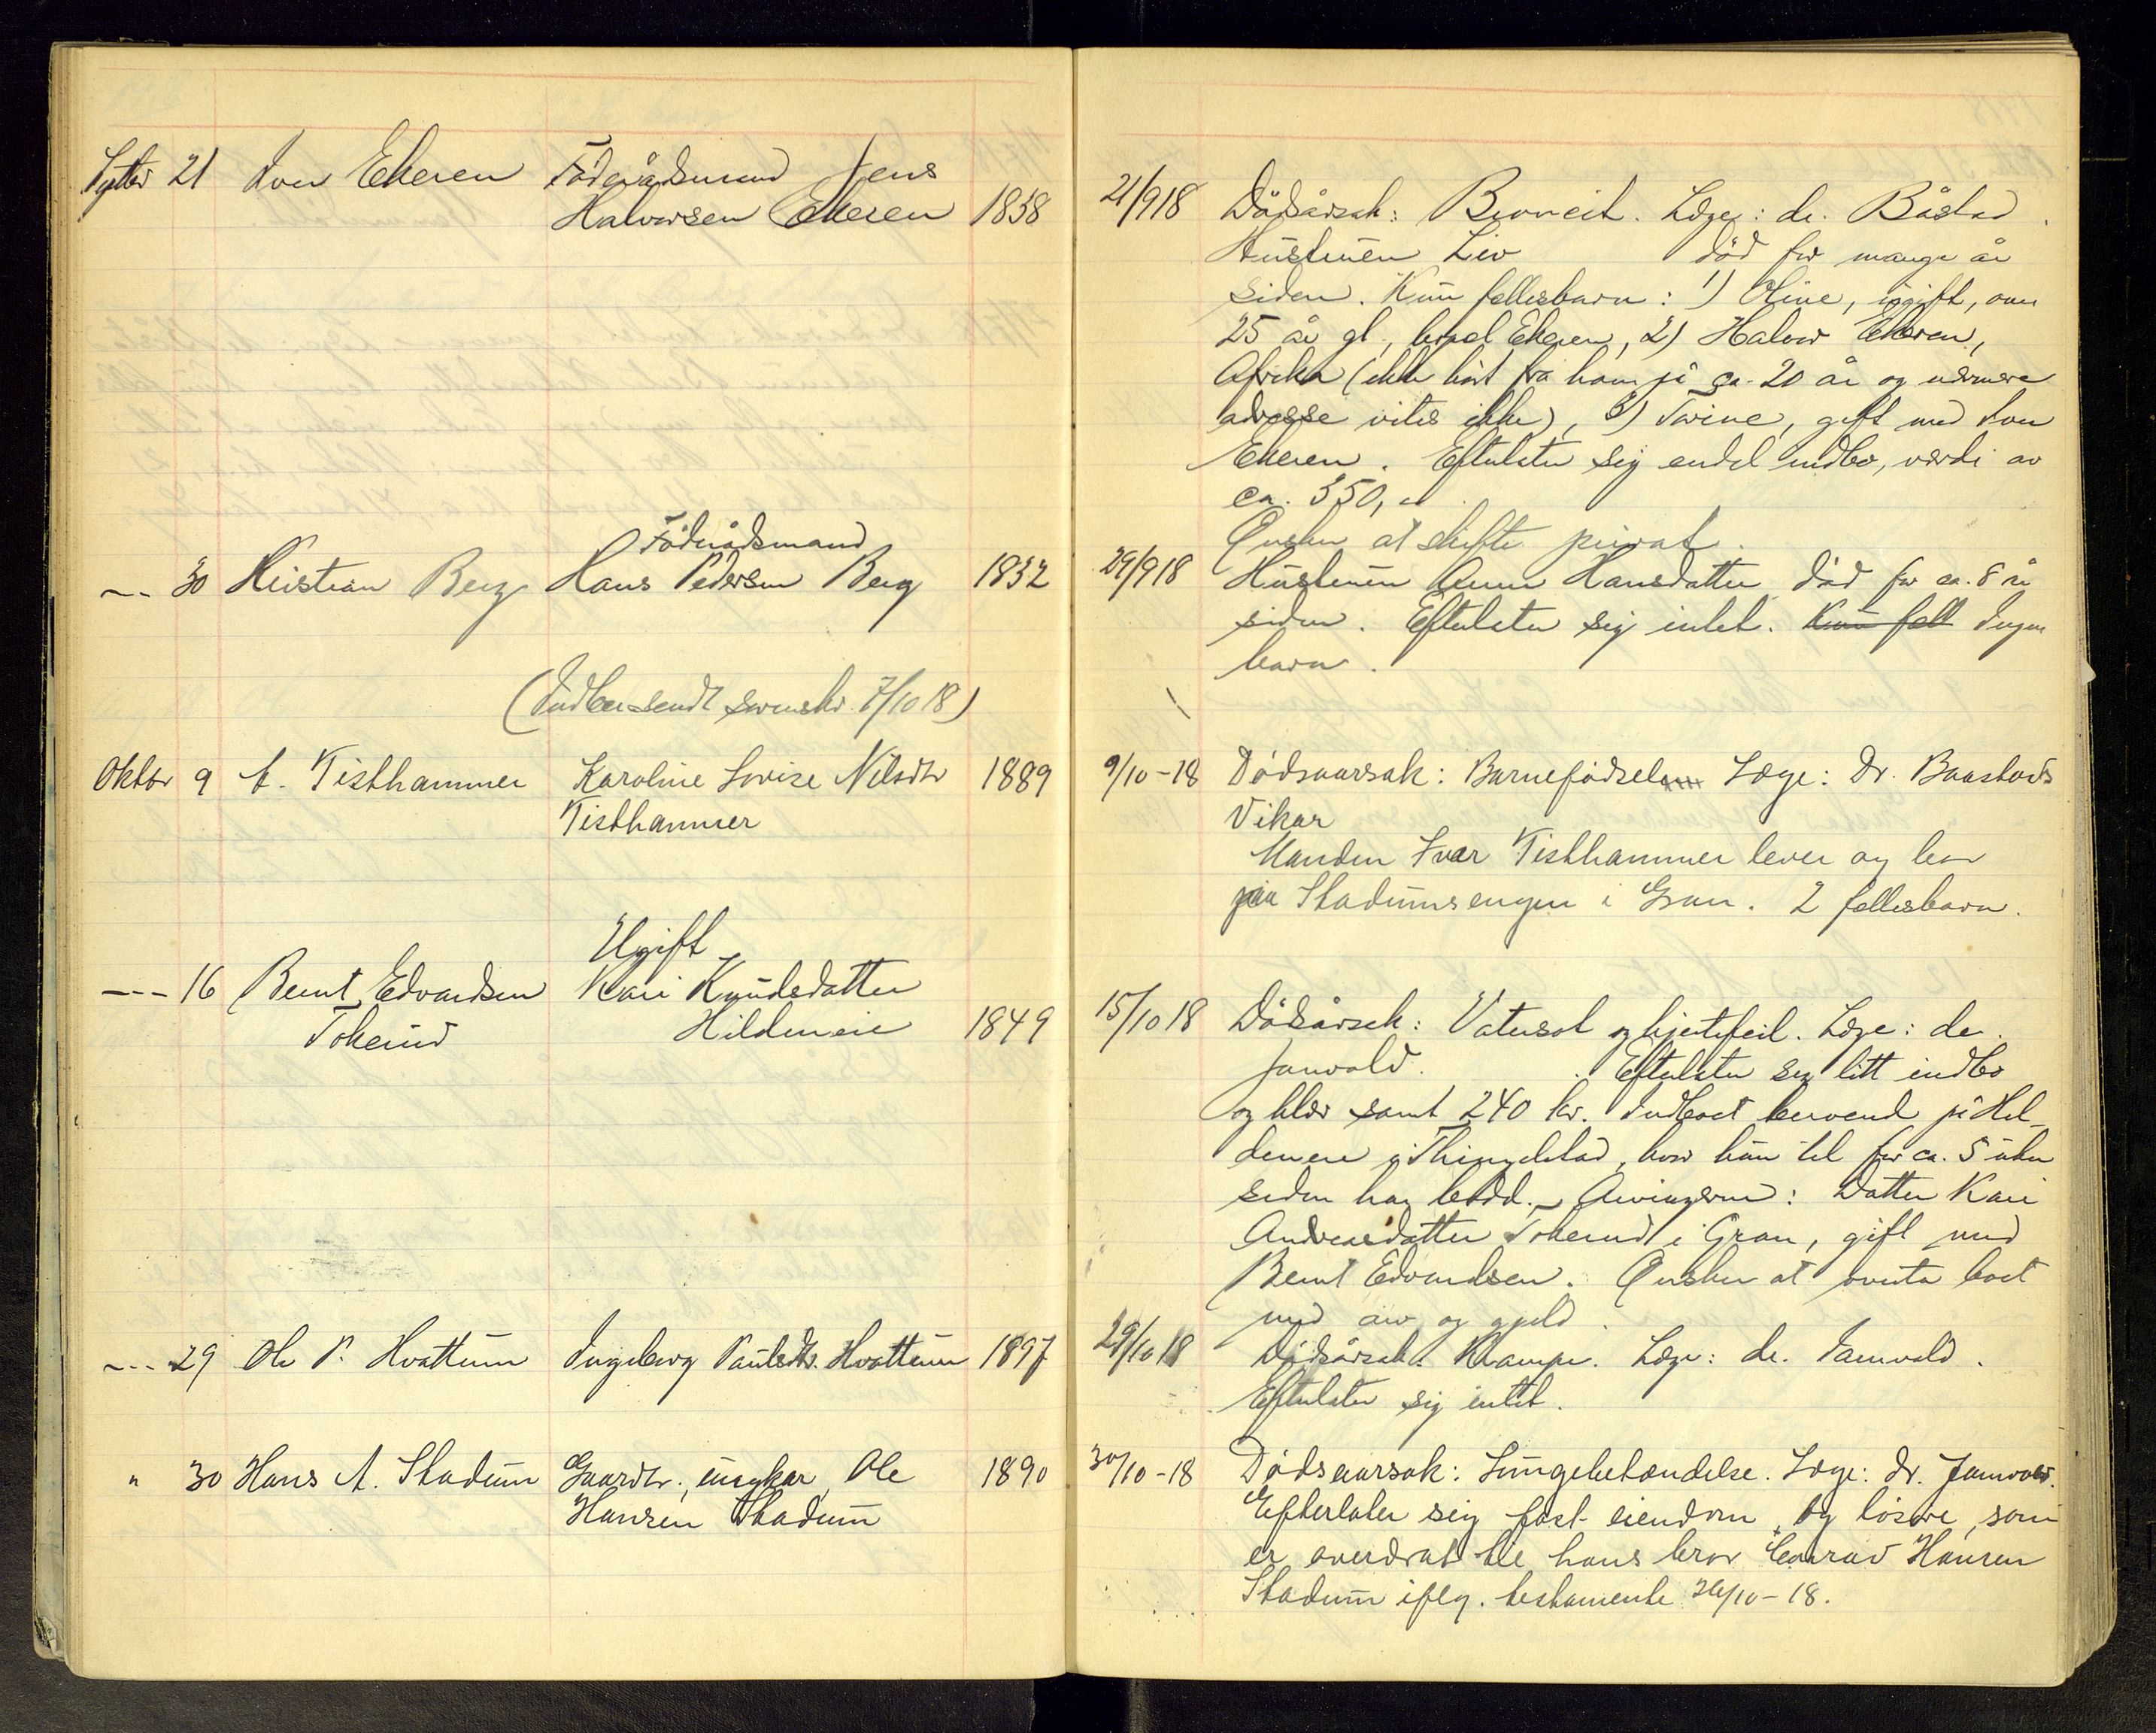 Septbr 21 Iver Ekeren Föderådsmand Jens
Halvorsen Ekeren 1838
21/9 18 Dödsårsak: Bronkit. Læge: dr. Båstad.
Hustruen Liv död for mange år
siden. Kun fellesbarn: 1) Oline, ugift, over
25 år gl., bopæl Ekeren, 2) Halvor Ekeren,
Afrika (ikke hört fra ham på ca. 20 år og nærmere
adresse vites ikke), 3) Torine, gift med Iver
Ekeren. Efterlater sig endel indbo, værdi av
ca. 350,
Önsker at skifte privat.
--- 30 Kristian Berg Föderådsmand
Hans Pedersen Berg 1832
29/9 18 Hustruen Anne Hansdatter död for ca. 8 år
siden. Efterlater sig intet. Kun fell Ingen
barn.
(Indber. sendt sorenskr. 7/10 18)
Oktbr 9 Tisthammer Karoline Lovise Nilsdtr 1889
Tisthammer
9/10-18 Dödsaarsak: Barnefödsel Læge: Dr. Baastads
Vikar
Manden Ivar Tisthammer lever og bor
paa Stadumsengen i Gran. 2 fellesbarn.
--- 16 Bernt Edvardsen Ugift
Tokerud Kari Knudsdatter
Hildeneie 1849
15/10 18 Dödsårsak: Vatersot og hjertefeil. Læge: dr.
Jamvold. Efterlater sig litt indbo
og klær samt 240 kr. Indboet beroend på Hil-
deneie i Thingelstad, hvor hun til for ca. 5 uker
siden har bodd. Arvingerne: Datter Kari
Andreasdatter Tokerud i Gran, gift med
Bernt Edvardsen. Önsker at overta boet
med arv og gjeld.
--- 29 Ole P. Hvattum Ingeborg Paulsdtr. Hvattum 1897
29/10 18 Dödsårsak: Krampe. Læge: dr. Jamvold.
Efterlater sig intet.
" 30 Hans A. Stadum Gaardbr., ungkar Ole 1890
Hansen Stadum
30/10-18 Dödsaarsak: Lungebetændelse. Læge: dr. Jamvold.
Efterlater sig fast eiendom og lösøre, som
er overdrat til hans bror Conrad Hansen
Stadum iflg. testamente 26/10-18.